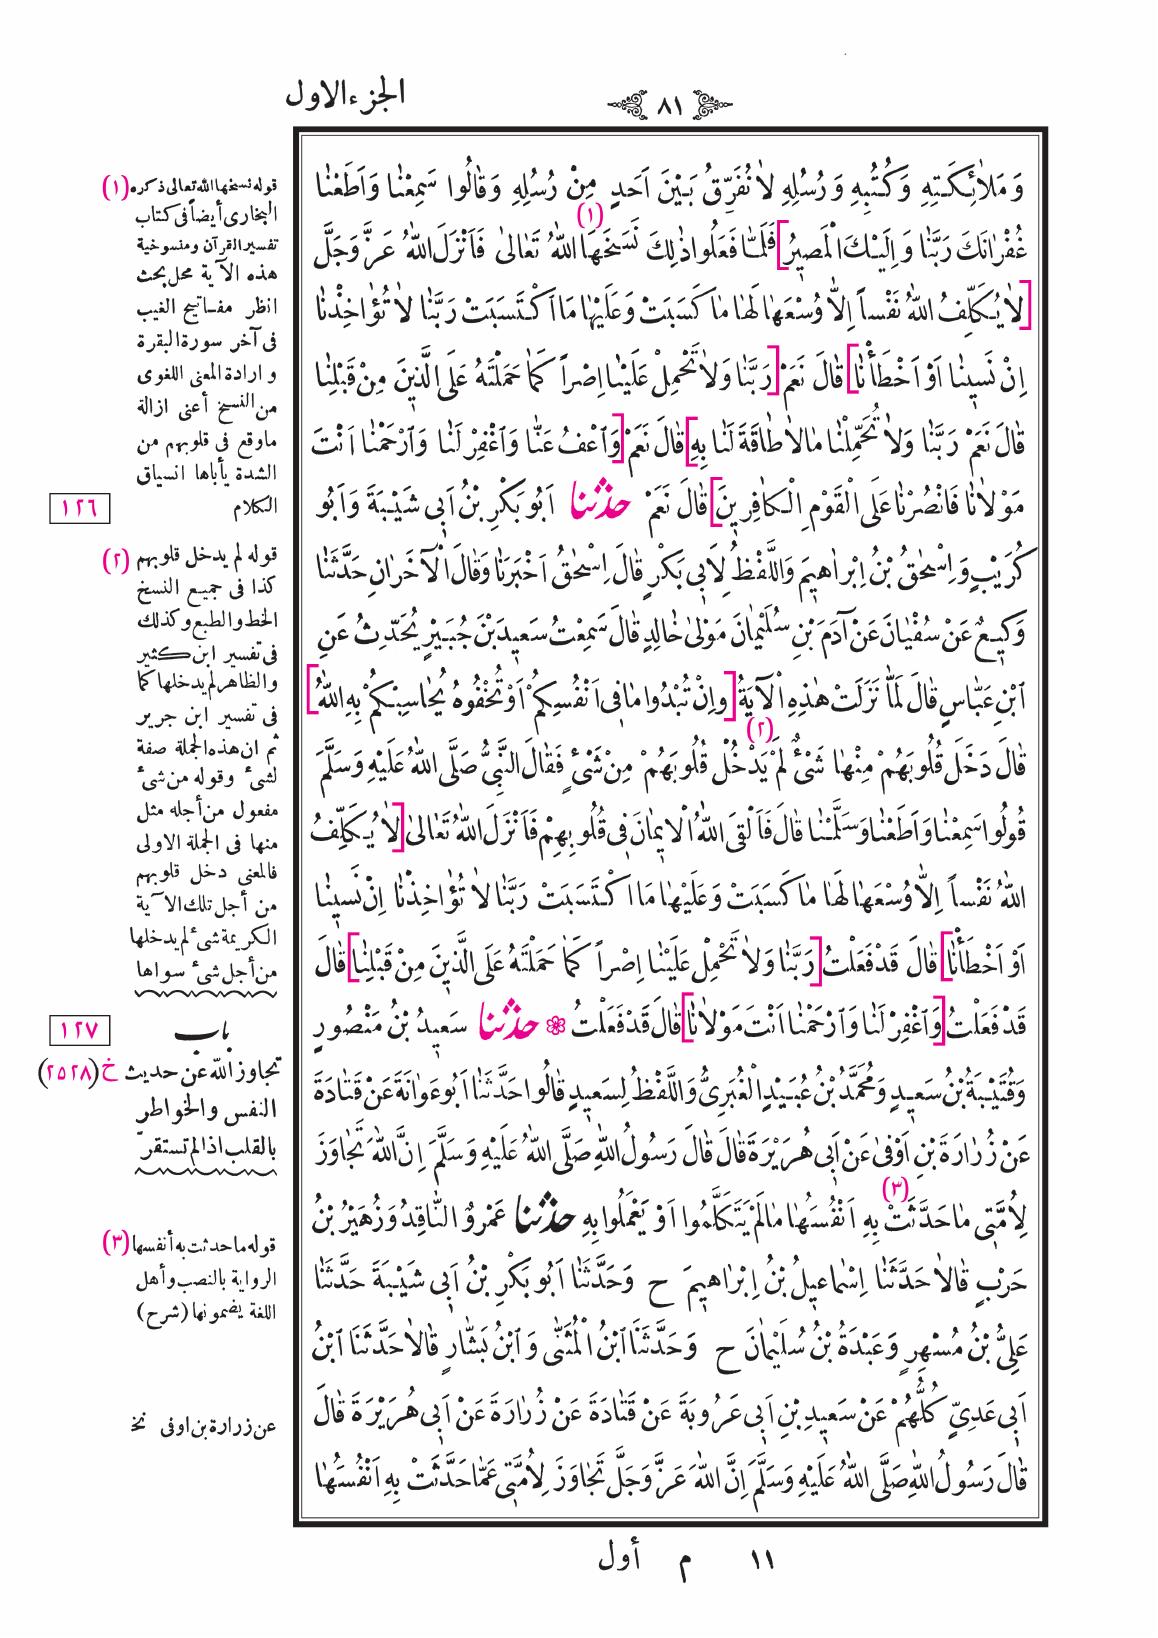 ٨١
الجزء الاول
وَمَلٰائِكَتِهِ وَكُتُبِهِ وَرُسُلِهِ لاٰ نُفَرِّقُ بَيْنَ اَحَدٍ مِنْ رُسُلِهِ وَقٰالُوا سَمِعْنٰا وَاَطَعْنٰا
غُفْرٰانَكَ رَبَّنٰا وَاِلَيْكَ الْمَصيرُ] فَلَمّٰا فَعَلُوا ذٰلِكَ نَسَخَهَا (١) اللهُ تَعٰالىٰ فَاَنْزَلَ اللهُ عَزَّ وَجَلَّ
[لاٰ يُكَلِّفُ اللهُ نَفْساً اِلاّٰ وُسْعَهٰا لَهٰا مٰا كَسَبَتْ وَعَلَيْهٰا مَا اكْتَسَبَتْ رَبَّنٰا لاٰ تُؤٰاخِذْنٰا
اِنْ نَسينٰا اَوْ اَخْطَأْنٰا] قٰالَ نَعَمْ [رَبَّنٰا وَلاٰ تَحْمِلْ عَلَيْنٰا اِصْراً كَمٰا حَمَلْتَهُ عَلَى الَّذينَ مِنْ قَبْلِنٰا
قٰالَ نَعَمْ رَبَّنٰا وَلاٰ تُحَمِّلْنٰا مٰا لاٰ طٰاقَةَ لَنٰا بِهِ] قٰالَ نَعَمْ [وَاعْفُ عَنّٰا وَاغْفِرْ لَنٰا وَارْحَمْنٰا اَنْتَ
مَوْلاٰنٰا فَانْصُرْنٰا عَلَى الْقَوْمِ الْكٰافِرينَ] قٰالَ نَعَمْ حدثنا اَبُو بَكْرِ بْنُ اَبى شَيْبَةَ وَاَبُو
كُرَيْبٍ وَاِسْحٰقُ بْنُ اِبْرٰاهيمَ وَاللَّفْظُ لِاَبى بَكْرٍ قٰالَ اِسْحٰقُ اَخْبَرَنٰا وَقٰالَ الْآخَرٰانِ حَدَّثَنٰا
وَكيعٌ عَنْ سُفْيٰانَ عَنْ آدَمَ بْنِ سُلَيْمٰانَ مَوْلىٰ خٰالِدٍ قٰالَ سَمِعْتُ سَعيدَ بْنَ جُبَيْرٍ يُحَدِّثُ عَنِ
ابْنِ عَبّٰاسٍ قٰالَ لَمّٰا نَزَلَتْ هٰذِهِ الْآيَةُ [وَاِنْ تُبْدُوا مٰا فى اَنْفُسِكُمْ اَوْ تُخْفُوهُ يُحٰاسِبْكُمْ بِهِ اللهُ]
قٰالَ دَخَلَ قُلُوبَهُمْ مِنْهٰا شَىْءٌ لَمْ يَدْخُلْ (٢) قُلُوبَهُمْ مِنْ شَىْءٍ فَقٰالَ النَّبِىُّ صَلَّى اللهُ عَلَيْهِ وَسَلَّمَ
قُولُوا سَمِعْنٰا وَاَطَعْنٰا وَسَلَّمْنٰا قٰالَ فَاَلْقَى اللهُ الْايمٰانَ فى قُلُوبِهِمْ فَاَنْزَلَ اللهُ تَعٰالىٰ [لاٰ يُكَلِّفُ
اللهُ نَفْساً اِلاّٰ وُسْعَهٰا لَهٰا مٰا كَسَبَتْ وَعَلَيْهٰا مَا اكْتَسَبَتْ رَبَّنٰا لاٰ تُؤٰاخِذْنٰا اِنْ نَسينٰا
اَوْ اَخْطَأْنٰا] قٰالَ قَدْ فَعَلْتُ [رَبَّنٰا وَلاٰ تَحْمِلْ عَلَيْنٰا اِصْراً كَمٰا حَمَلْتَهُ عَلَى الَّذينَ مِنْ قَبْلِنٰا] قٰالَ
قَدْ فَعَلْتُ [وَاغْفِرْ لَنٰا وَارْحَمْنٰا اَنْتَ مَوْلاٰنٰا] قٰالَ قَدْ فَعَلْتُ ❁ حدثنا سَعيدُ بْنُ مَنْصُورٍ
وَقُتَيْبَةُ بْنُ سَعيدٍ وَمُحَمَّدُ بْنُ عُبَيْدٍ الْغُبَرِىُّ وَاللَّفْظُ لِسَعيدٍ قٰالُوا حَدَّثَنٰا اَبُو عَوٰانَةَ عَنْ قَتٰادَةَ
عَنْ زُرٰارَةَ بْنِ اَوْفىٰ عَنْ اَبى هُرَيْرَةَ قٰالَ قٰالَ رَسُولُ اللهِ صَلَّى اللهُ عَلَيْهِ وَسَلَّمَ اِنَّ اللهَ تَجٰاوَزَ
لِاُمَّتى مٰا حَدَّثَتْ بِهِ (٣) اَنْفُسَهٰا مٰا لَمْ يَتَكَلَّمُوا اَوْ يَعْمَلُوا بِهِ حدثنا عَمْرٌو النّٰاقِدُ وَزُهَيْرُ بْنُ
حَرْبٍ قٰالاٰ حَدَّثَنٰا اِسْمٰاعيلُ بْنُ اِبْرٰاهيمَ ح وَحَدَّثَنٰا اَبُو بَكْرِ بْنُ اَبى شَيْبَةَ حَدَّثَنٰا
عَلِىُّ بْنُ مُسْهِرٍ وَعَبْدَةُ بْنُ سُلَيْمٰانَ ح وَحَدَّثَنَا ابْنُ الْمُثَنّٰى وَابْنُ بَشّٰارٍ قٰالاٰ حَدَّثَنَا ابْنُ
اَبى عَدِىٍّ كُلُّهُمْ عَنْ سَعيدِ بْنِ اَبى عَرُوبَةَ عَنْ قَتٰادَةَ عَنْ زُرٰارَةَ عَنْ اَبى هُرَيْرَةَ قٰالَ
قٰالَ رَسُولُ اللهِ صَلَّى اللهُ عَلَيْهِ وَسَلَّمَ اِنَّ اللهَ عَزَّ وَجَلَّ تَجٰاوَزَ لِاُمَّتى عَمّٰا حَدَّثَتْ بِهِ اَنْفُسَهٰا
(١) قوله نسخها الله تعالى ذكره
البخارى أيضاً فى كتاب
تفسير القرآن ومنسوخية
هذه الآية محل بحث
انظر مفاتيح الغيب
فى آخر سورة البقرة
وارادة المعنى اللغوى
من النسخ أعنى ازالة
ماوقع فى قلوبهم من
الشدة يأباها انسياق
الكلام
١٢٦
(٢) قوله لم يدخل قلوبهم
كذا فى جميع النسخ
الخط والطبع وكذلك
فى تفسير ابن كثير
والظاهر لم يدخلها كما
فى تفسير ابن جرير
ثم ان هذه الجملة صفة
لشىء وقوله من شىء
مفعول من أجله مثل
منها فى الجملة الاولى
فالمعنى دخل قلوبهم
من أجل تلك الآية
الكريمة شىء لم يدخلها
من أجل شىء سواها
١٢٧
باب
تجاوز الله عن حديث خ (٢٥٢٨)
النفس والخواطر
بالقلب اذا لم تستقر
(٣) قوله ما حدثت به أنفسها
الرواية بالنصب وأهل
اللغة يضمونها (شرح)
عن زرارة بن اوفى نخ
١١ م أول